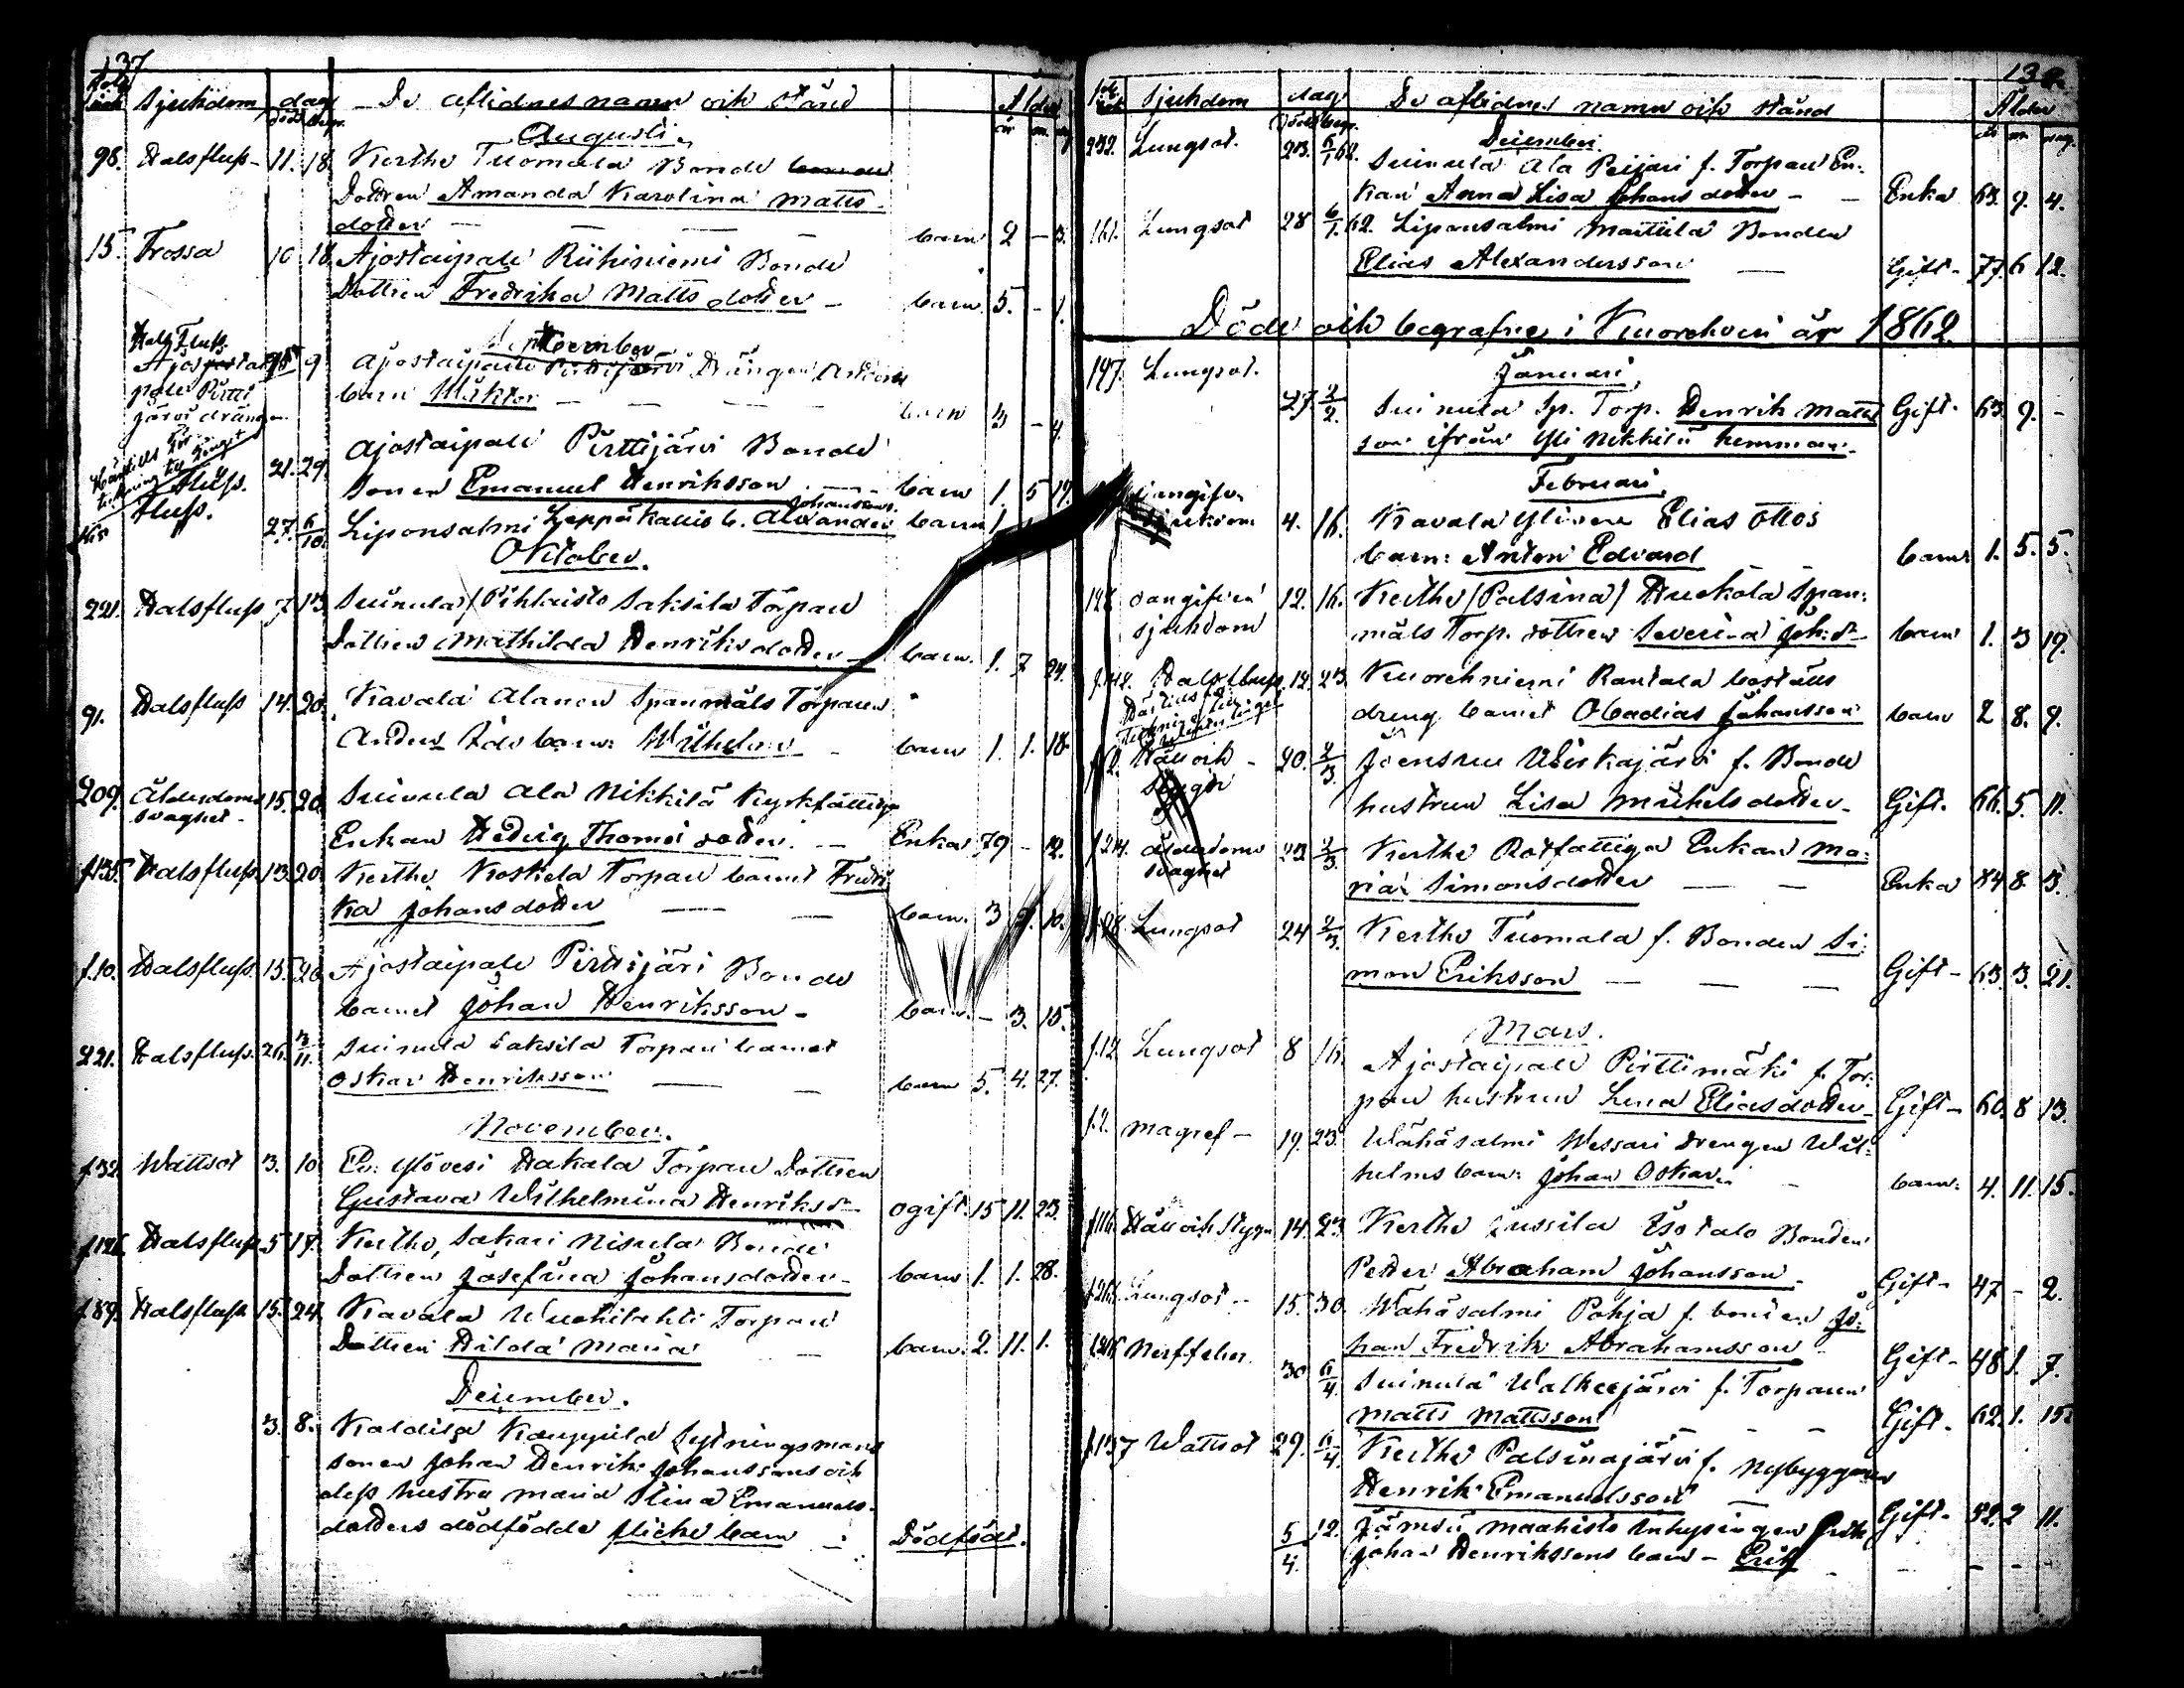 137
Sjukdom dag De aflidnes namn och stånd Ålder
död begr. år m. dag
Augusti.
98. Halsfluss 11. 18. Kerthe Tuomala Bonde
Dottren Amanda Karolina Matts
dotter — — — — barn 2 – 3.
15. Frossa 10 18. Ajostaipale Riihiniemi Bonde
Dottren Fredrika Mattsdotter – barn. 5. – 1.
September
9 Ajostaipale Pirttijärvi Drängen
barn — — — barn 3 – 4.
Ajostaipale Pirttijärvi Bonde
Fluss. 21. 29. Sonen Emanuel Henriksson — barn 1. 5 17.
Johanssons
Fluss. 27. 6/10. Liponsalmi Leppäkallio b. Alexander barn 1
Oktober.
221. Halsfluss 7 13 Suinula/Pihlaisto Saksila Torpare
Dottren Mathilda Henriksdotter – barn. 1. 7 24.
91. Halsfluss 14. 20. Kavala Alanen Spanmåls Torparen
Anders barn: Wilhelm – barn 1. 1. 18.
209. Ålderdoms 15. 20. Suinula Ala Nikkilä Kyrkfattiga
svaghet – Enkan Hedvig Thomædotter. — Enka 79 – 12.
f135. Halsfluss. 13. 20. Kerthe Koskela Torpare barnet Fredri
ka Johansdotter — — barn. 3 9. 10.
f.10. Halsfluss. 15. 20 Ajostaipale Pirttijäri Bonde
barnet Johan Henriksson – barn. – 3. 15.
221. Halsfluss. 26. 3/11. Suinula Saksila Torpare barnet
Oskar Henriksson — — barn 5. 4. 27.
November.
f32. Wattsot 3. 10 Ylövesi Hakala Torpare Dottren
Gustava Wilhelmina Henriksdr ogift. 15 11. 23.
f126. Halsfluss 5 17. Kerthe, Sakari Nisula Bonde
Dottren Josefina Johansdotter – barn 1. 1. 28.
f.89. Halsfluss 15. 24. Kavala Wuohilahti Torpare
Dottren Hilda Maria — barn. 2. 11. 1.
December.
3. 8. Kaldila Kauppila Sytningsmans
sonen Johan Henrik Johanssons och
dess hustru Maria Stina Emanuels-
dotters dödfödde flicke barn – Dödfödt.
138.
Sjukdom dag De aflidnes namn och stånd Ålder
Död begr. år m. dag.
December.
232. Lungsot. 23. 6/1 62. Suinula Ala Peijari f. Torpare En-
kan Anna Lisa Johansdotter – – Enka 63. 9. 4.
161. Lungsot 28 6/1. 62. Liponsalmi Mattila Bonden
Elias Alexandersson — Gift – 77. 6 12.
Döde och begrafne i Kuorehvesi år 1862.
Januari,
197. Lungsot. 27. 2/2. Suinula Sp. Torp. Henrik Matts Gift. 63. 9. –
son ifrån Yli Nikkilä hemman.
Februari,
oangifven
sjukdom 4. 16. Kavala Ylinen Elias Ottos
barn: Anton Edvard barn. 1. 5. 5.
128. oangifven 12. 16. Kerthe (Palsina) Huokola Span:
sjukdom måls Torp. dottren Severina Joh:dr barn 1. 3 19.
Halsfluss. 12. 23. Kuorehniemi Rantala boställs
dreng barnet Obadias Johansson barn 2 8. 9.
Håll och 20. 2/3 Joensuu Uskajärvi f. Bonde
Styng hustrun Lisa Mickelsdotter – Gift. 66. 5. 11.
f214. Ålderdoms 23 2/3. Kerthe Rotfattiga Enkan Ma:
svaghet ria Simonsdotter — — Enka 84 8. 3.
Lungsot 24 2/3. Kerthe Tuomala f. Bonden Si:
mon Eriksson — — — Gift – 63. 3. 21.
Mars.
f.12 Lungsot 8 16. Ajostaipale Pirttimäki f. Tor:
pare hustrun Lena Eliasdotter – Gift – 60. 8 13.
f.2. Magref – 19. 23. Wähäsalmi Wessari Drengen Wil:
helms barn: Johan Oskar. – barn. 4. 11. 15.
f116. Håll och Styng 14. 23 Kerthe Jussila Isotalo Bonden
Petter Abraham Johansson – Gift – 47 – 2.
Lungsot – 15. 30. Wähäsalmi Pohja f. bonden Jo:
han Fredrik Abrahamsson Gift – 48 1. 7.
Nerffeber. 30 6/4. Suinula Walkeejärvi f. Torparen
Matts Mattsson — — Gift. 62. 1. 15.
f137 Wattsot 29. 6/4. Kerthe Palsinajärvi f. Nybyggaren
Henrik Emanuelsson — Gift. 52. 2 11.
5/4. 12. Jämsä Maahisto Inhysingen
Johan Henrikssons barn – Erik – – – –